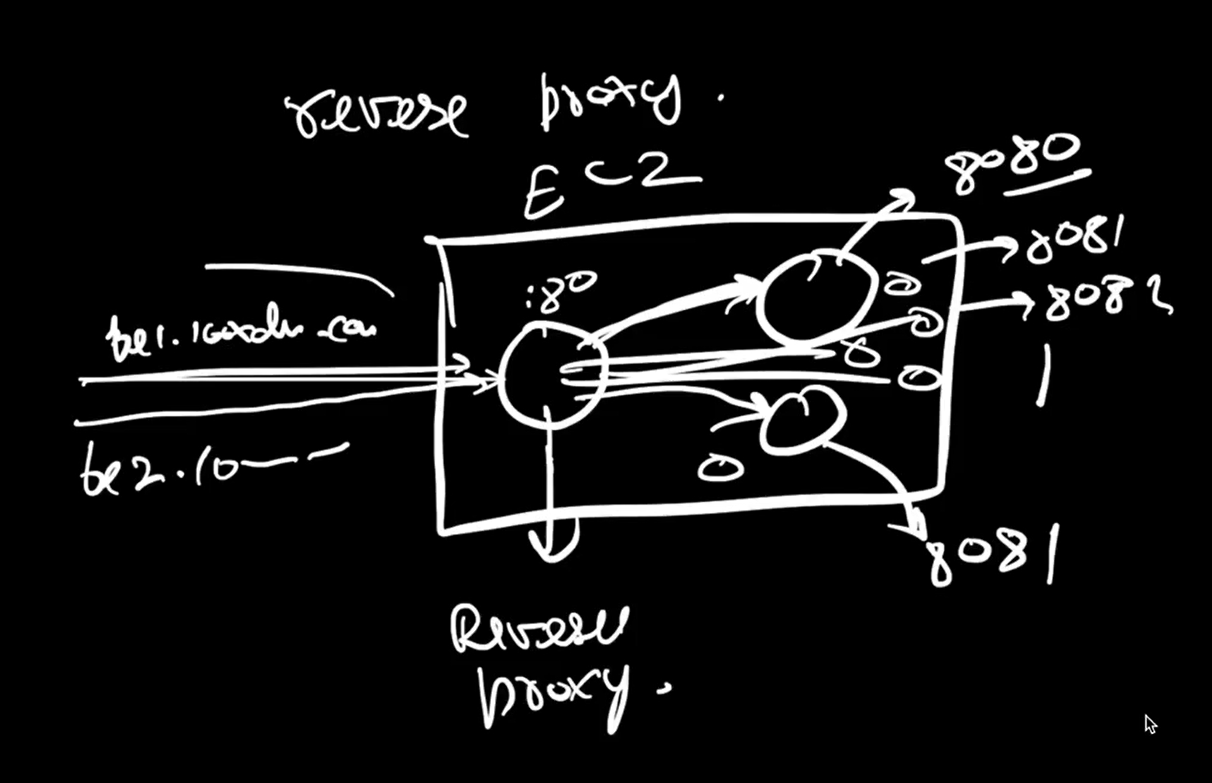 reverse proxy.
EC2
8080
8081
8082
:80
be1.100xdevs.com
be2.10
8081
Reverse
proxy.